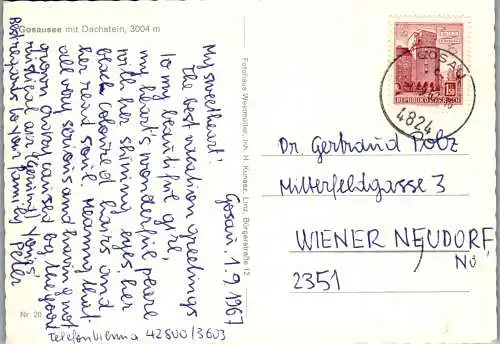 Gosausee mit Dachstein, 3004 m
Gosau, 1.9.1967
My sweetheart!
The best vacation greetings
to my beautiful girl,
my heart's wonderful pearl
with her shining eyes, her
black coloured hairs and
her read soul. Meaning that
all very serious and having not
drawn caused by the good
Yours
Best regards to your family Peter
Telefon Vienna 42800/3603
Nr. 20
Fotohaus Westmüller, Inh. H. Kunesz, Linz, Bürgerstraße 12
REPUBLIK ÖSTERREICH
GOSAU
4824
Dr. Gertraud Polz
Mitterfeldgasse 3
WIENER NEUDORF,
NÖ
2351